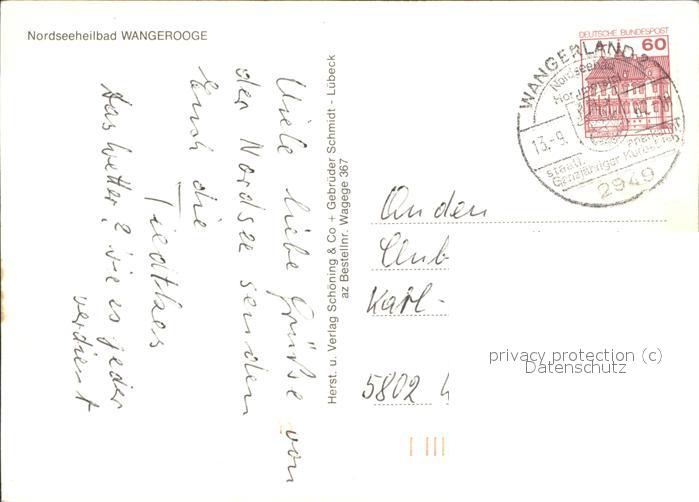 Nordseeheilbad WANGEROOGE
Viele liebe Grüße von
der Nordsee senden
Euch die
Tiedtkes
Das Wetter? wie es jeder
verdient
Herst. u. Verlag Schöning & Co + Gebrüder Schmidt - Lübeck
az Bestellnr. Wagege 367
DEUTSCHE BUNDESPOST
60
WANGERLAND 2
Nordseebad
13.-9.
staatl.
Ganzjähriger
2949
An den
Club
Karl-
5802
privacy protection (c)
Datenschutz